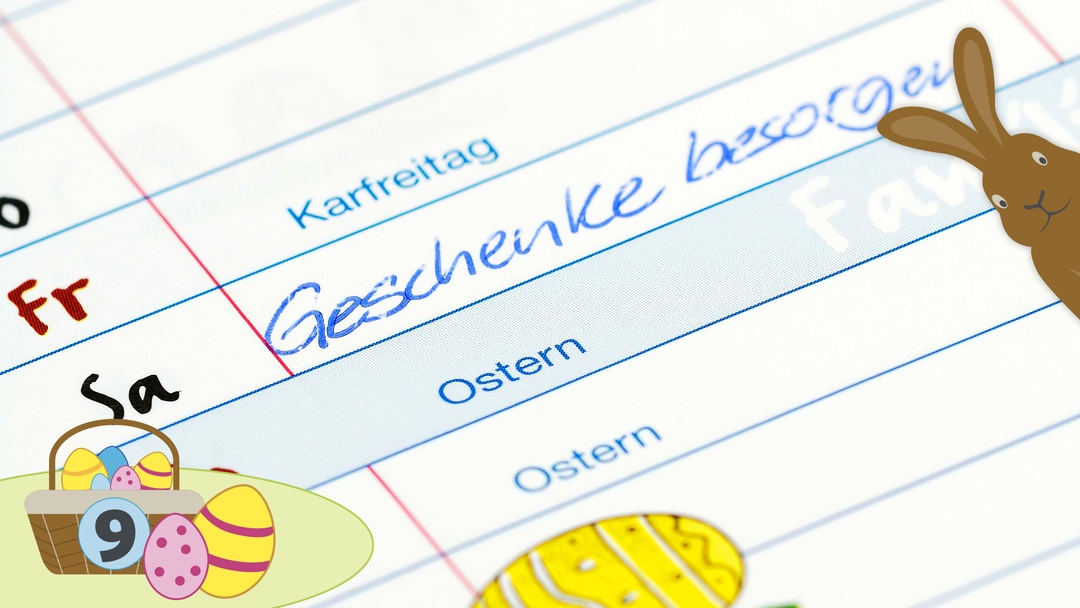 Karfreitag
Fr Geschenke besorgen
Sa
Ostern
Ostern
9